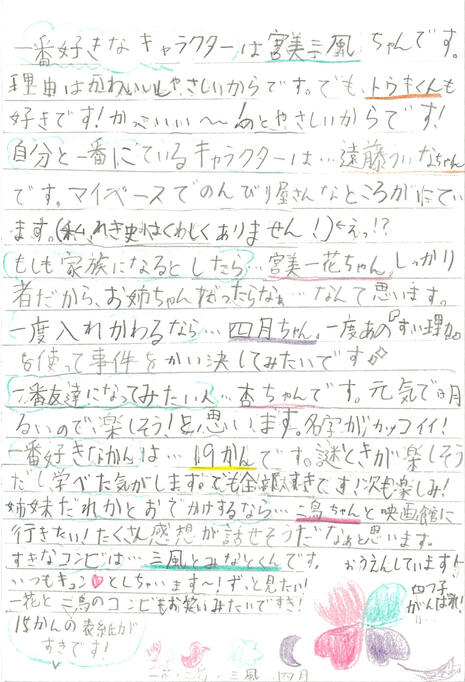 一番好きなキャラクターは宮美三風ちゃんです。
理由はかわいいしやさしいからです。でも、トウキくんも
好きです！かっこいいい〜あとやさしいからです！
自分と一番にているキャラクターは…遠藤ういなちゃん
です。マイペースでのんびり屋さんなところがにてい
ます。(私、れき史はくわしくありません！)←えっ!?
もしも家族になるとしたら…宮美一花ちゃん。しっかり
者だから、お姉ちゃんだったらなぁ…なんて思います。
一度入れかわるなら…四月ちゃん。一度あの『すい理力』
を使って事件をかい決してみたいです
一番友達になってみたい人…杏ちゃんです。元気で明
るいので、楽しそう！と思います。名字がカッコイイ！
一番好きなかんは…19かんです。謎ときが楽しそう
だし学べた気がします。でも全部大すきです！次も楽しみ！
姉妹だれかとおでかけするなら…二鳥ちゃんと映画館に
行きたい！たくさん感想が話せそうだなぁと思います。
すきなコンビは…三風とみなとくんです。
おうえんしています！
いつもキュン♡としちゃいます〜！ずっと見たい！
四つ子がんばれ！
一花と二鳥のコンビもお笑いみたいですき！
15かんの表紙が
すきです！
一花・二鳥・三風・四月